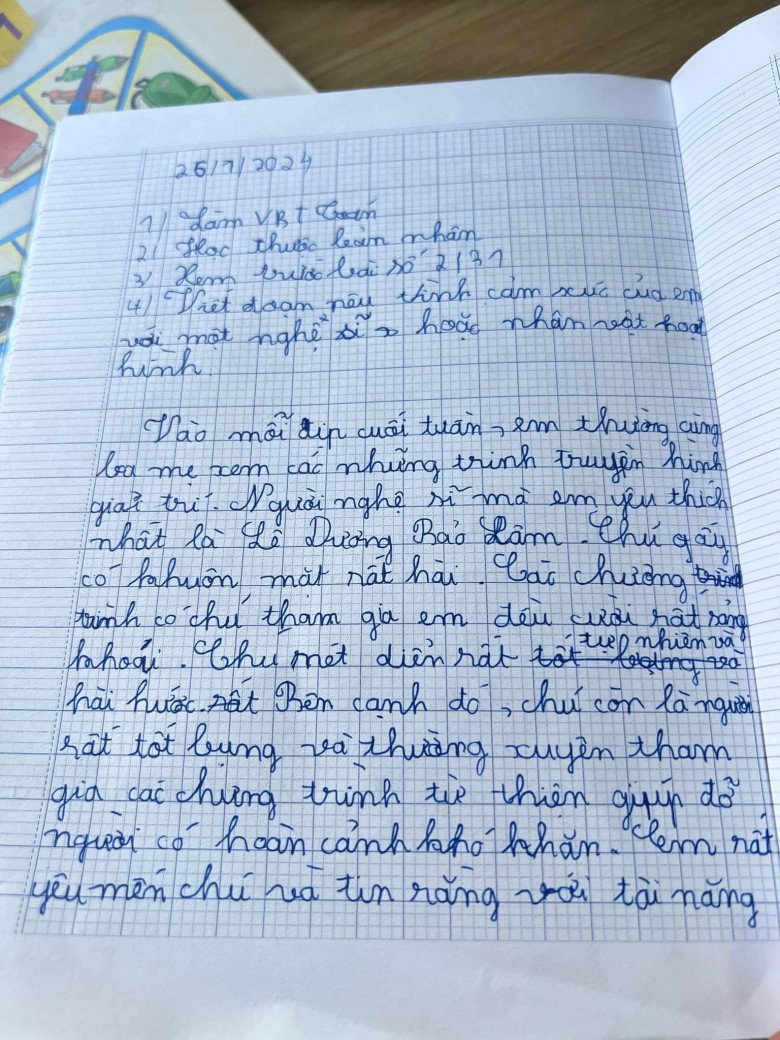 25/7/2024
1/ Làm VBT Toán
2/ Học thuộc lòm nhân
3/ Xem trước bài số 2 | 31
4/ Viết đoạn nêu tình cảm xúc của em
với một nghệ sĩ hoặc nhân vật hoạt
hình.
Vào mỗi dịp cuối tuần, em thường cùng
ba mẹ xem các những trinh truyện hình
giải trí. Người nghệ sĩ mà em yêu thích
nhất là Lê Dương Bảo Lâm. Chú gấy
có khuôn mặt rất hài. Các chương
trình có chú tham gia em đều cười rất sảng
khoái. Chú mét diễn rất tự nhiên và
hài hước. Bên cạnh đó, chú còn là người
rất tốt bụng và thường xuyên tham
gia các chưng trình từ thiện giúp đỡ
người có hoàn cảnh khó khăn. Em rất
yêu mến chú và tin rằng với tài năng